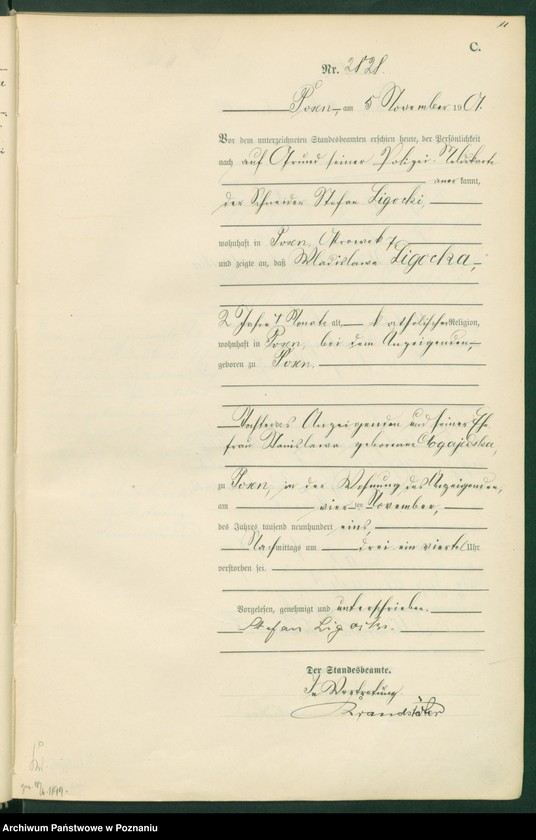 C.
Nr. 2828.
Posen, am 5 November 1901.
Vor dem unterzeichneten Standesbeamten erschien heute, der Persönlichkeit
nach auf Grund seiner Polizei Meldekarte
anerkannt,
der Schneider Stefan Ligocki,
wohnhaft in Posen,
und zeigte an, daß Wladislawa Ligocka,
2 Jahre 7 Monate alt, katholischer Religion,
wohnhaft in Posen, bei dem Anzeigenden,
geboren zu Posen.
Tochter des Anzeigenden und seiner Ehe
frau Stanislawa geborenen
zu Posen, in der Wohnung des Anzeigenden,
am vier ten November,
des Jahres tausend neunhundert eins,
Nachmittags um drei ein viertel Uhr
verstorben sei.
Vorgelesen, genehmigt und unterschrieben.
Stefan Ligocki.
Der Standesbeamte.
In Vertretung
Brandstäter
Archiwum Państwowe w Poznaniu